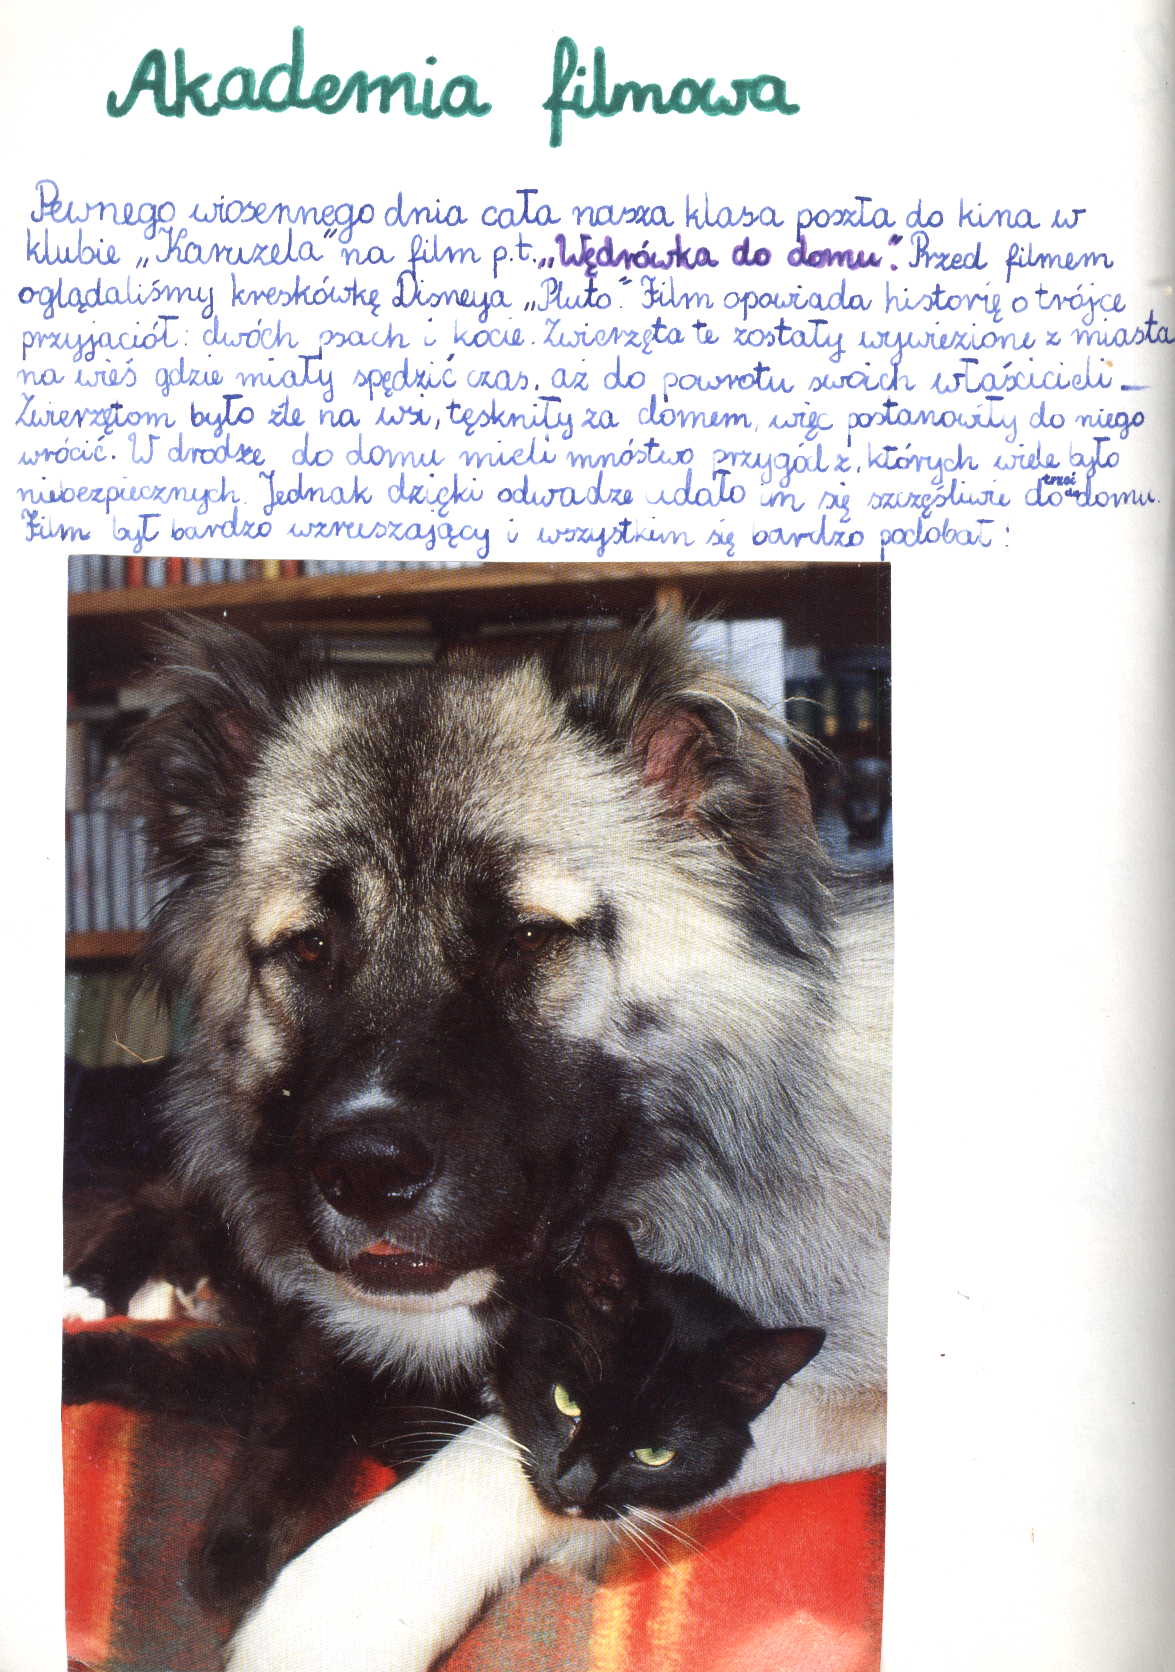 Akademia filmowa
Pewnego wiosennego dnia cała nasza klasa poszła do kina w
klubie „Karuzela” na film p.t. „Wędrówka do domu”. Przed filmem
oglądaliśmy kreskówkę Disneya „Pluto”. Film opowiada historię o trójce
przyjaciół: dwóch psach i kocie. Zwierzęta te zostały wywiezione z miasta
na wieś gdzie miały spędzić czas, aż do powrotu swoich właścicieli
Zwierzętom było źle na wsi, tęskniły za domem, więc postanowiły do niego
wrócić. W drodze do domu mieli mnóstwo przygód z, których wiele było
niebezpiecznych. Jednak dzięki odwadze udało im się szczęśliwie do domu.
Film był bardzo wzruszający i wszystkim się bardzo podobał!